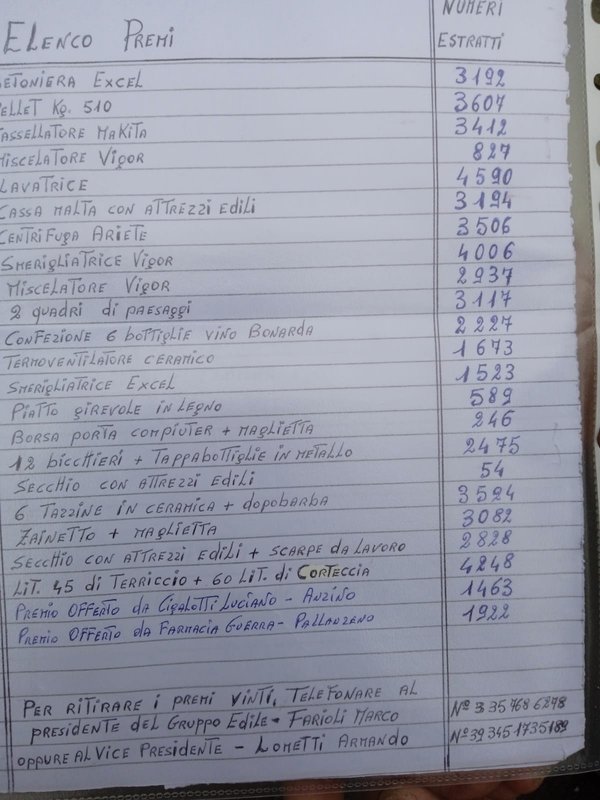 NUMERI
ELENCO PREMI ESTRATTI
ETONIERA EXCEL 3192
ELLET KG. 510 3607
TASSELLATORE MAKITA 3412
MISCELATORE VIGOR 827
LAVATRICE 4590
CASSA MALTA CON ATTREZZI EDILI 3194
CENTRIFUGA ARIETE 3506
SMERIGLIATRICE VIGOR 4006
MISCELATORE VIGOR 2937
2 QUADRI DI PAESAGGI 3117
CONFEZIONE 6 BOTTIGLIE VINO BONARDA 2227
TERMOVENTILATORE CERAMICO 1673
SMERIGLIATRICE EXCEL 1523
PIATTO GIREVOLE IN LEGNO 589
BORSA PORTA COMPIUTER + MAGLIETTA 246
12 BICCHIERI + TAPPABOTTIGLIE IN METALLO 2475
SECCHIO CON ATTREZI EDILI 54
6 TAZZINE IN CERAMICA + DOPOBARBA 3524
ZAINETTO + MAGLIETTA 3082
SECCHIO CON ATTREZZI EDILI + SCARPE DA LAVORO 2828
LIT. 45 DI TERRICCIO + 60 LIT. DI CORTECCIA 4248
PREMIO OFFERTO DA CIGALOTTI LUCIANO - ANZINO 1463
PREMIO OFFERTO DA FARMACIA GUERRA - PALLANZENO 1922
PER RITIRARE I PREMI VINTI, TELEFONARE AL
PRESIDENTE DEL GRUPPO EDILE - FARIOLI MARCO N° 335 768 6278
OPPURE AL VICE PRESIDENTE - LOMETTI ARMANDO N° 39 345 1735189